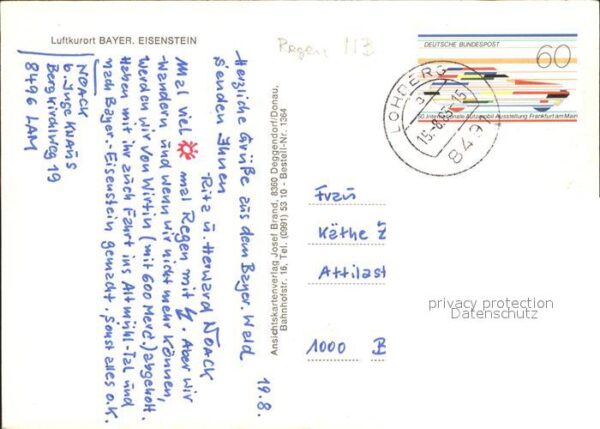 Luftkurort BAYER. EISENSTEIN
Regen 113
DEUTSCHE BUNDESPOST
60
50. Internationale Automobil-Ausstellung Frankfurt am Main
LOHBERG
a
15
8491
NOACK
b. Inge Kraus
Bergkirchlweg 19
8496 LAM
19.8.
Herzliche Grüße aus dem Bayer. Wald
senden Ihnen
Rita u. Herward NOACK
Mal viel mal Regen mit Aber wir
wandern und wenn wir nicht mehr können,
werden wir von Wirtin (mit 600 Merc.) abgeholt.
Haben mit ihr auch Fahrt ins Altmühl-Tal und
nach Bayer.-Eisenstein gemacht. Sonst alles o.k.
Ansichtskartenverlag Josef Brand, 8360 Deggendorf/Donau,
Bahnhofstr. 16, Tel. (0991) 53 10 - Bestell-Nr. 1364
Frau
Käthe Z
Attilast
1000 B
privacy protection
Datenschutz